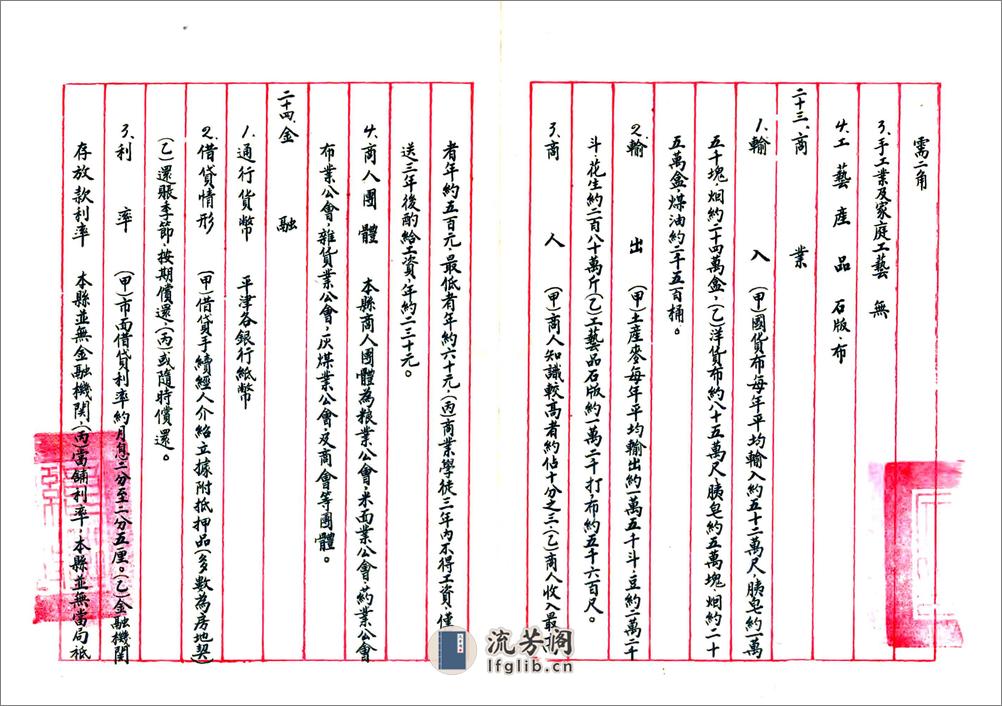 需二角
3、手工業及家庭工藝　無
4、工藝產品　石版、布
二十三、商業
1、輸入　(甲)國貨布每年平均輸入約五十二萬尺，胰皂約一萬
五千塊，烟約二十四萬盒，(乙)洋貨布約八十五萬尺，胰皂約五萬塊，烟約二十
五萬盒，煤油約二千五百桶。
2、輸出　(甲)土產麥每年平均輸出約一萬五千斗，豆約二萬二千
斗，花生約二百八十萬斤(乙)工藝品石版約一萬二千打，布約五千六百尺。
3、商人　(甲)商人知識較高者約佔十分之三，(乙)商人收入最高
者年約五百元，最低者年約六十元，(丙)商業學徒三年內不得工資，僅
送三年後酌給工資，年約二三十元。
4、商人團體　本縣商人團體為粮業公會，米面業公會，約業公會
布業公會，雜貨業公會，灰煤業公會，及商會等團體。
二十四、金融
1、通行貨幣　平津各銀行紙幣
2、借貸情形　(甲)借貸手續經人介紹立據附抵押品(多數為房地契)
(乙)還賬季節，按期償還，(丙)或隨時償還。
3、利率　(甲)市面借貸利率約月息二分至二分五厘。(乙)金融機関
存放款利率　本縣並無金融機関，(丙)當鋪利率，本縣並無當局祇
流芳阁
lfglib.cn